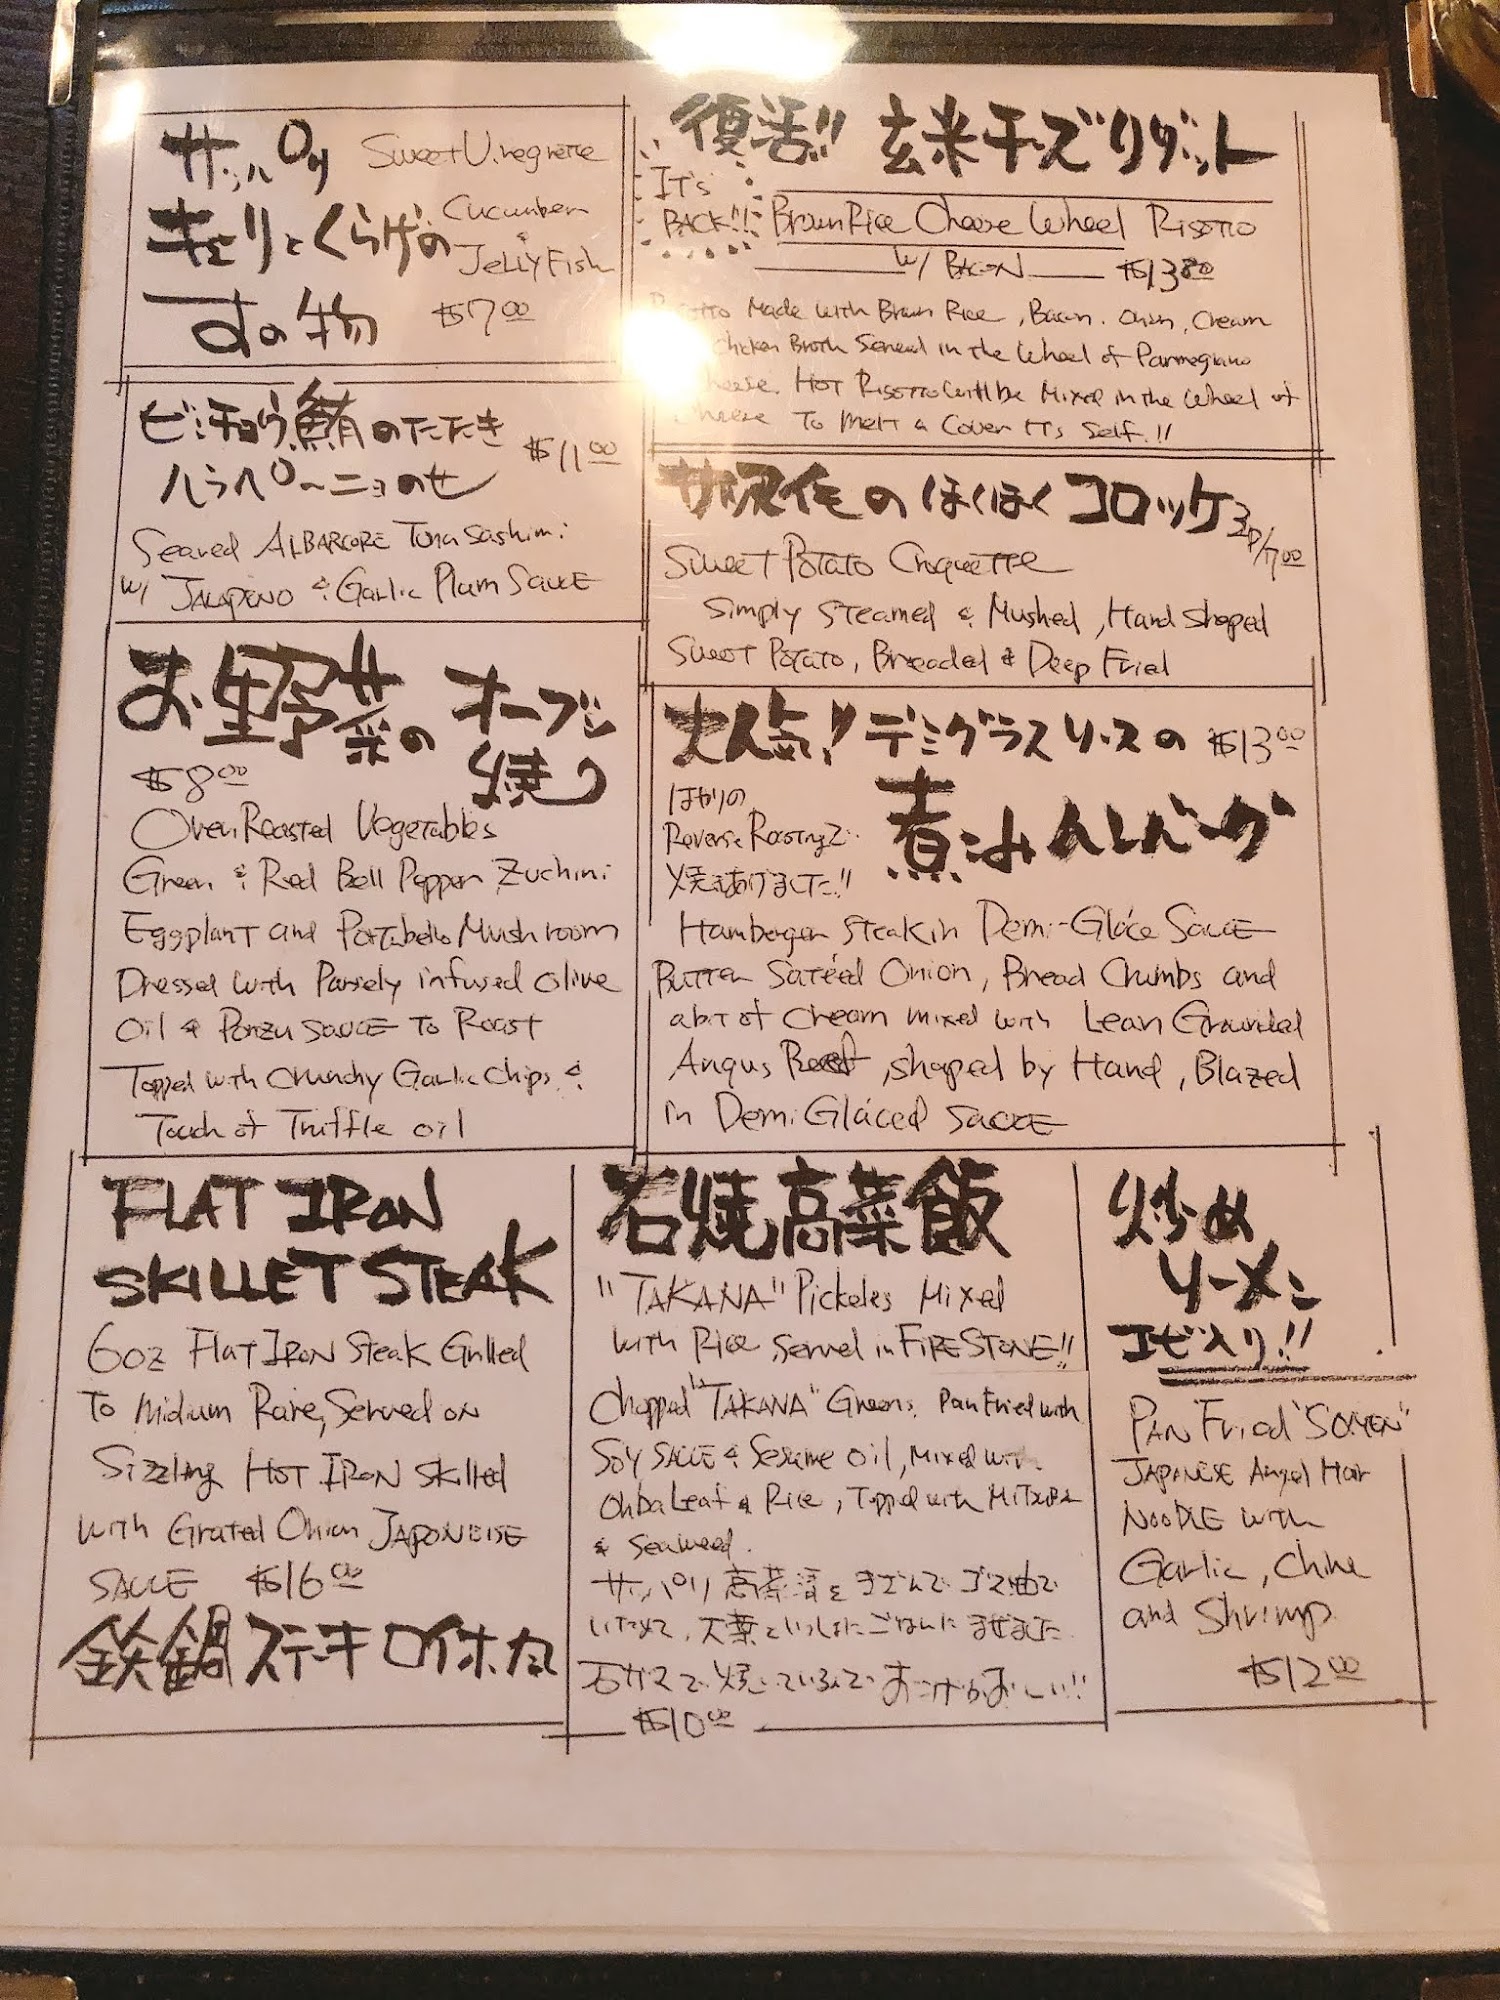 サッパリ
Sweet Vinegrette
きゅうりとくらげの
Cucumber
&
Jelly Fish
すの物
$7.00
復活!! 玄米チーズリゾット
It's
BACK!!
Brown Rice Cheese Wheel Risotto
w/ BACON $13.80
Risotto Made with Brown Rice, Bacon. Onion, Cream
Chicken Broth Served in the Wheel of Parmegiano
Cheese. HOT Risotto will be Mixed in the Wheel of
Cheese To Melt a Cover It's Self.!!
ビンチョウ鮪のたたき
$11.00
ハラペーニョのせ
Seared ALBARCORE Tuna Sashimi
w/ JALAPENO & Garlic Plum Sauce
のほくほくコロッケ
3p/7.00
Sweet Potato Croquette
Simply Steamed & Mushed, Hand Shaped
Sweet Potato, Breaded & Deep Fried
お野菜のオーブン
焼き
$8.00
Oven Roasted Vegetables
Green & Red Bell Pepper, Zuchini
Eggplant and Portabello Mushroom
Dressed with Parsely infused Olive
Oil & Ponzu Sauce To Roast
Topped with Crunchy Garlic Chips &
Touch of Truffle oil
大人気!! デミグラスソースの $13.00
煮こみハンバーグ
Reverse Roastingで
焼きあげました!!
Hamberger Steak in Demi-Glace Sauce
Butter Sateed Onion, Bread Crumbs and
a bit of Cream mixed with Lean Grounded
Angus Beef, shaped by Hand, Blazed
in Demi Glaced Sauce
FLAT IRON
SKILLET STEAK
6oz Flat IRON Steak Grilled
To Midium Rare, Served on
Sizzling HOT IRON Skilled
with Grated Onion JAPONEISE
SAUCE $16.00
鉄鍋ステーキ
石焼高菜飯
"TAKANA" Pickeles Mixed
with Rice, Served in FIRE STONE!!
Chopped "TAKANA" Greens, Pan Fried with
Soy Sauce & Sesame Oil, Mixed with
Ohba Leaf & Rice, Topped with Mitsuba
& Seaweed.
サッパリ高菜漬をきざんでゴマ油で
いためて、大葉といっしょにごはんにまぜました
石ガマで焼いているのでおこげがおいしい!!
$10.00
炒め
ソーメン
エビ入り!!
PAN Fried "SOMEN"
JAPANESE Angel Hair
NOODLE with
Garlic, Chive
and Shrimp
$12.00